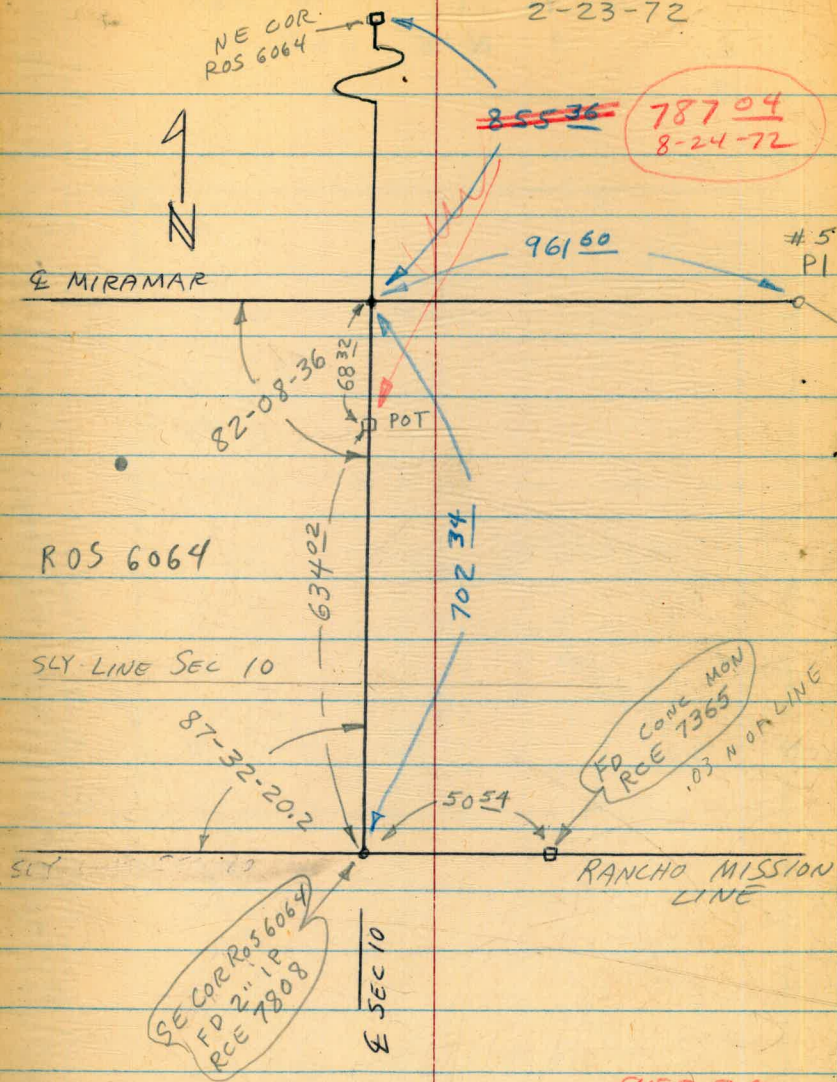 2-23-72
NE COR.
ROS 6064
855 36
787 04
8-24-72
N
961 60
#5
PI
℄ MIRAMAR
68 32
82-08-36
POT
ROS 6064
634 02
702 34
SLY LINE SEC 10
FD CONC MON
RCE 7365
.03 N OF LINE
87-32-20.2
50 54
SLY
RANCHO MISSION
LINE
SE COR ROS 6064
FD 2" IP
RCE 7808
℄ SEC 10